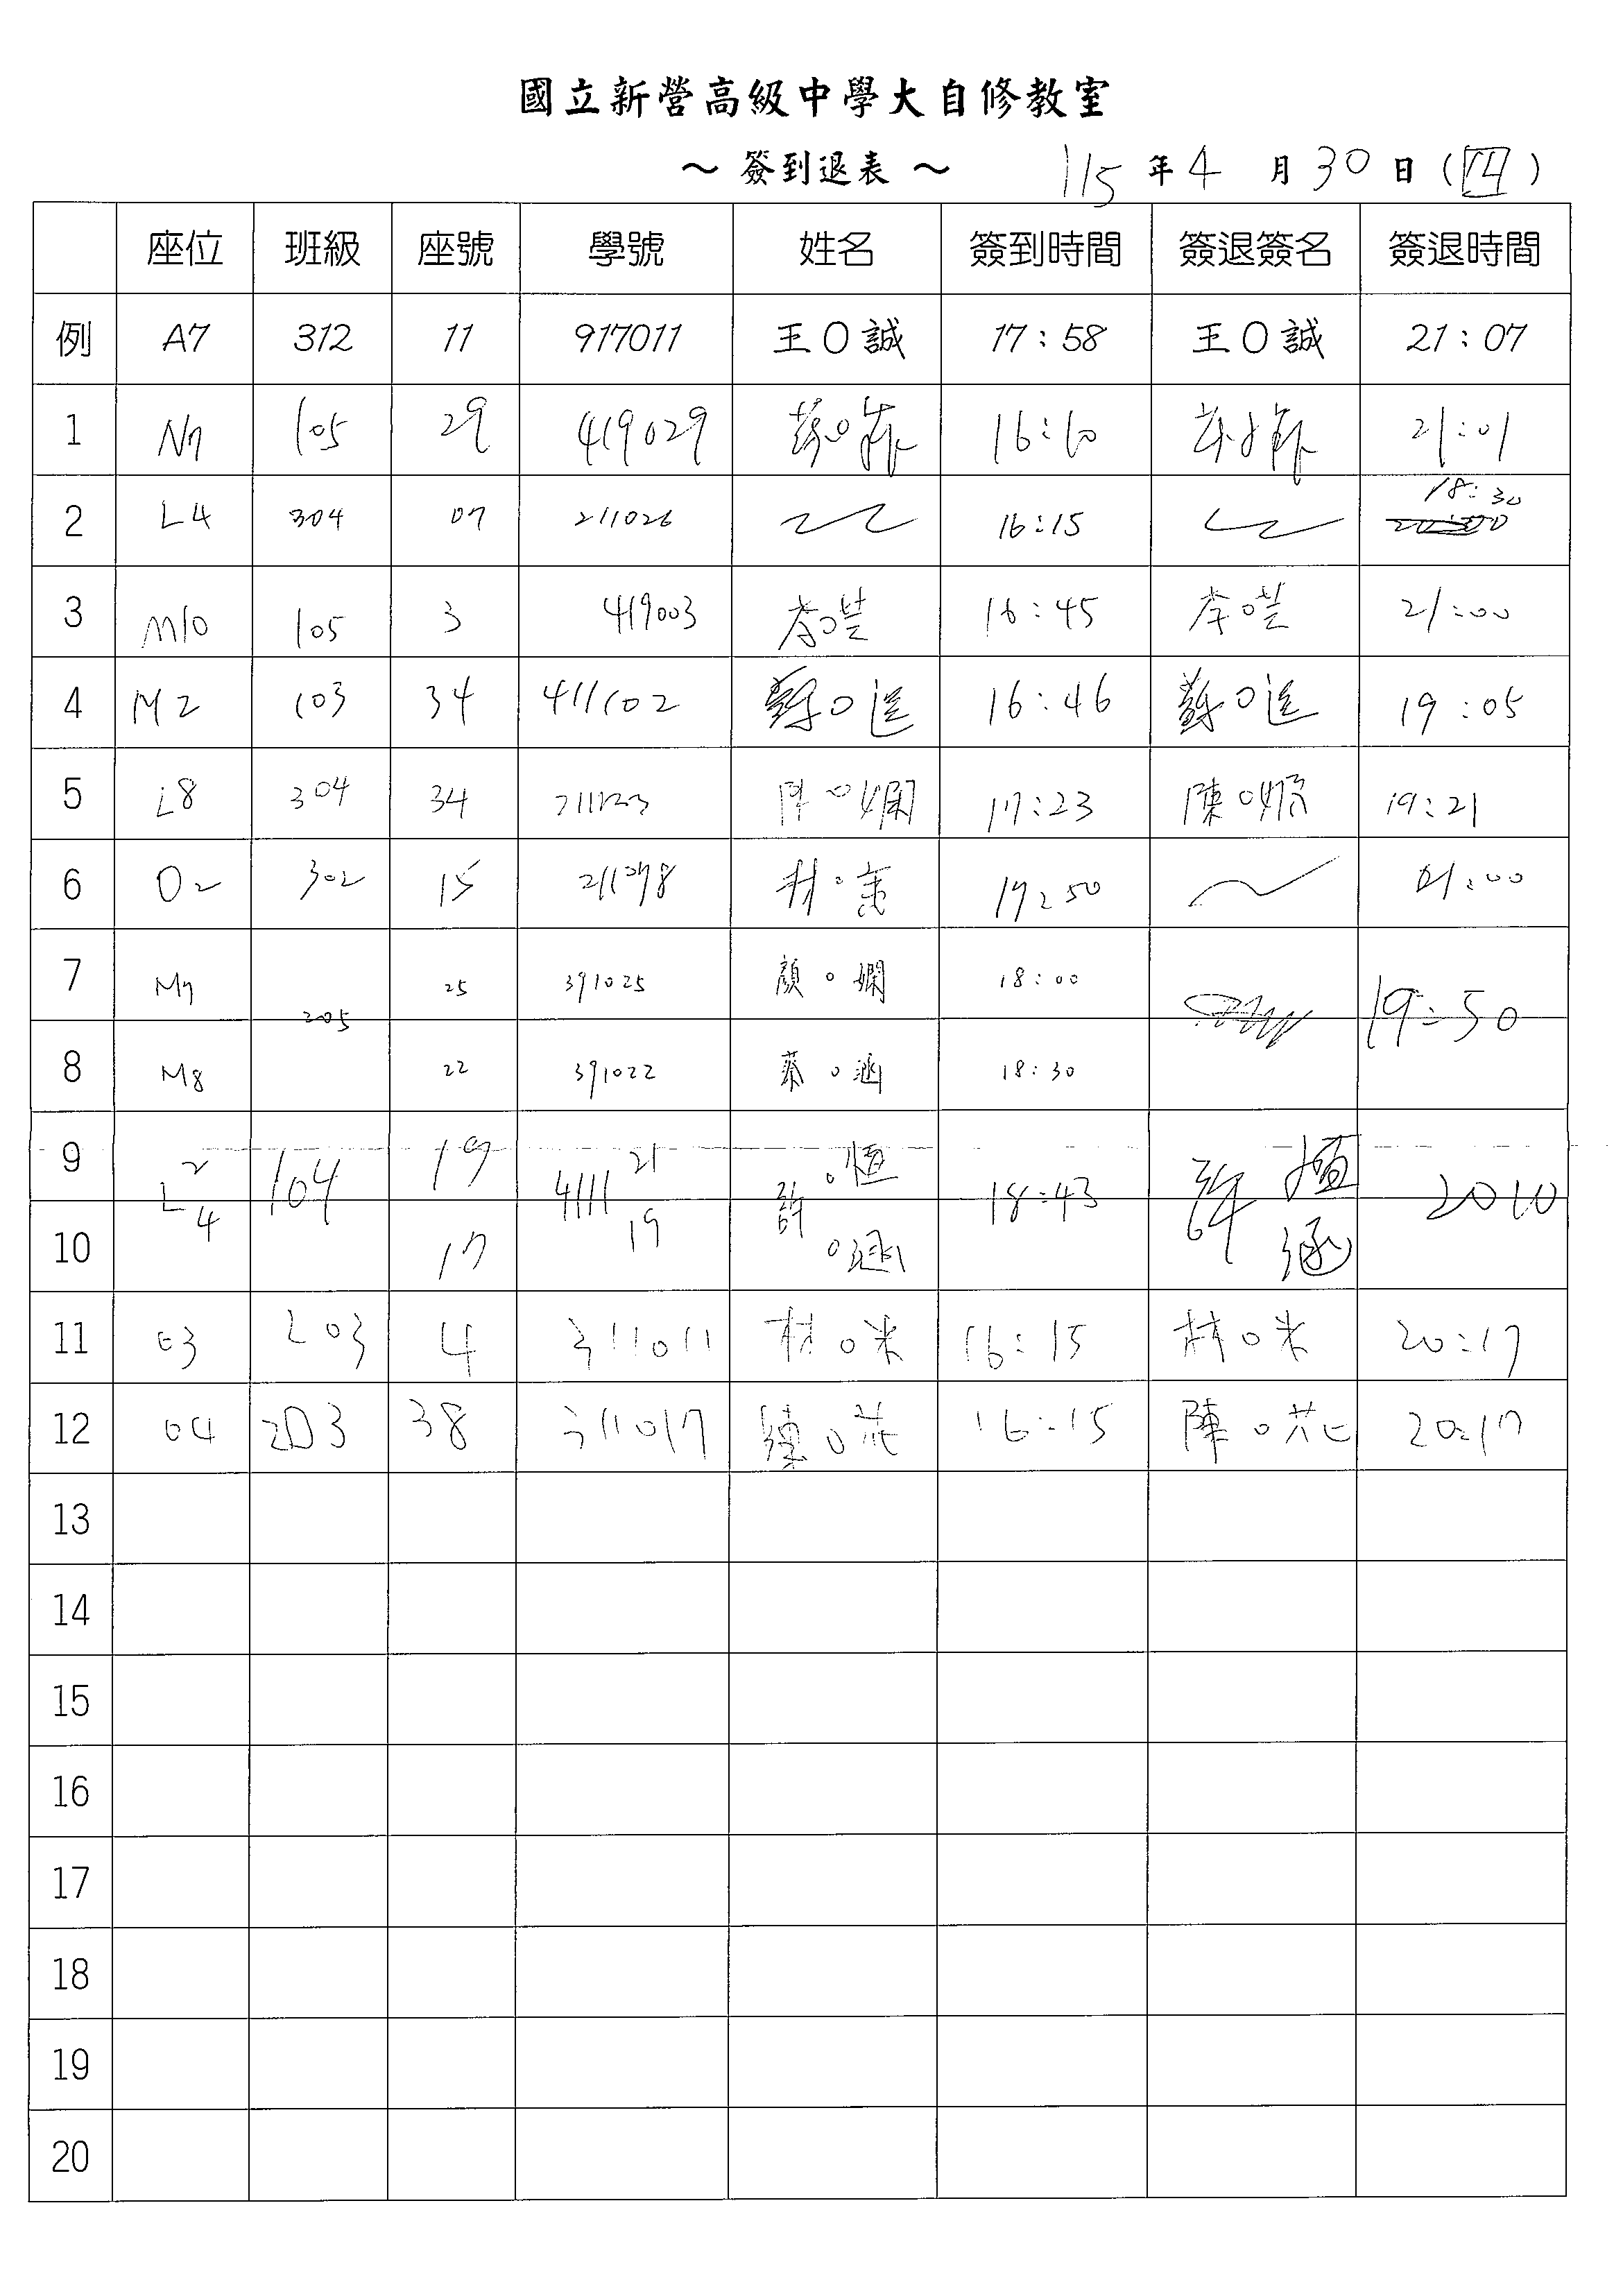 國立新營高級中學大自修教室
～ 簽到退表 ～ 115 年 4 月 30 日 (四)
座位 班級 座號 學號 姓名 簽到時間 簽退簽名 簽退時間
例 A7 312 11 917011 王O誠 17:58 王O誠 21:07
1 N7 105 29 419029 16:10 21:01
18:30
2 L4 304 07 211026 16:15 20:00
3 M10 105 3 419003 李O 16:45 李O 21:00
4 M2 103 34 411102 蘇O 16:46 蘇O 19:05
5 L8 304 34 陳O嫻 17:23 陳O嫻 19:21
6 O2 302 15 林O 17:50 21:00
7 M7 25 391025 顏O嫻 18:00
205 19:50
8 M8 22 391022 蔡O涵 18:30
9 L2 104 19 411121 許O恒 18:43 許 2010
10 4 17 19 O涵 涵
11 O3 203 4 311011 林O米 16:15 林O米 20:17
12 O4 203 38 311017 陳O花 16:15 陳O花 20:17
13
14
15
16
17
18
19
20